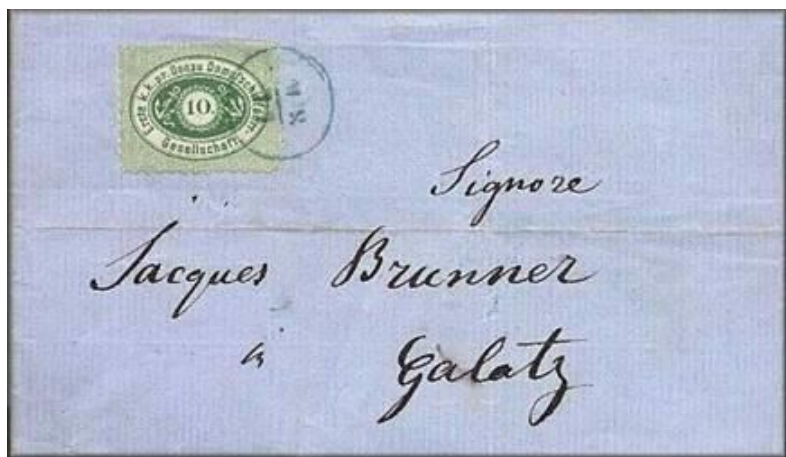 Erste k.k. pr. Donau Dampfschiffahrt-
Gesellschaft
10
Signore
Jacques Brunner
à Galatz